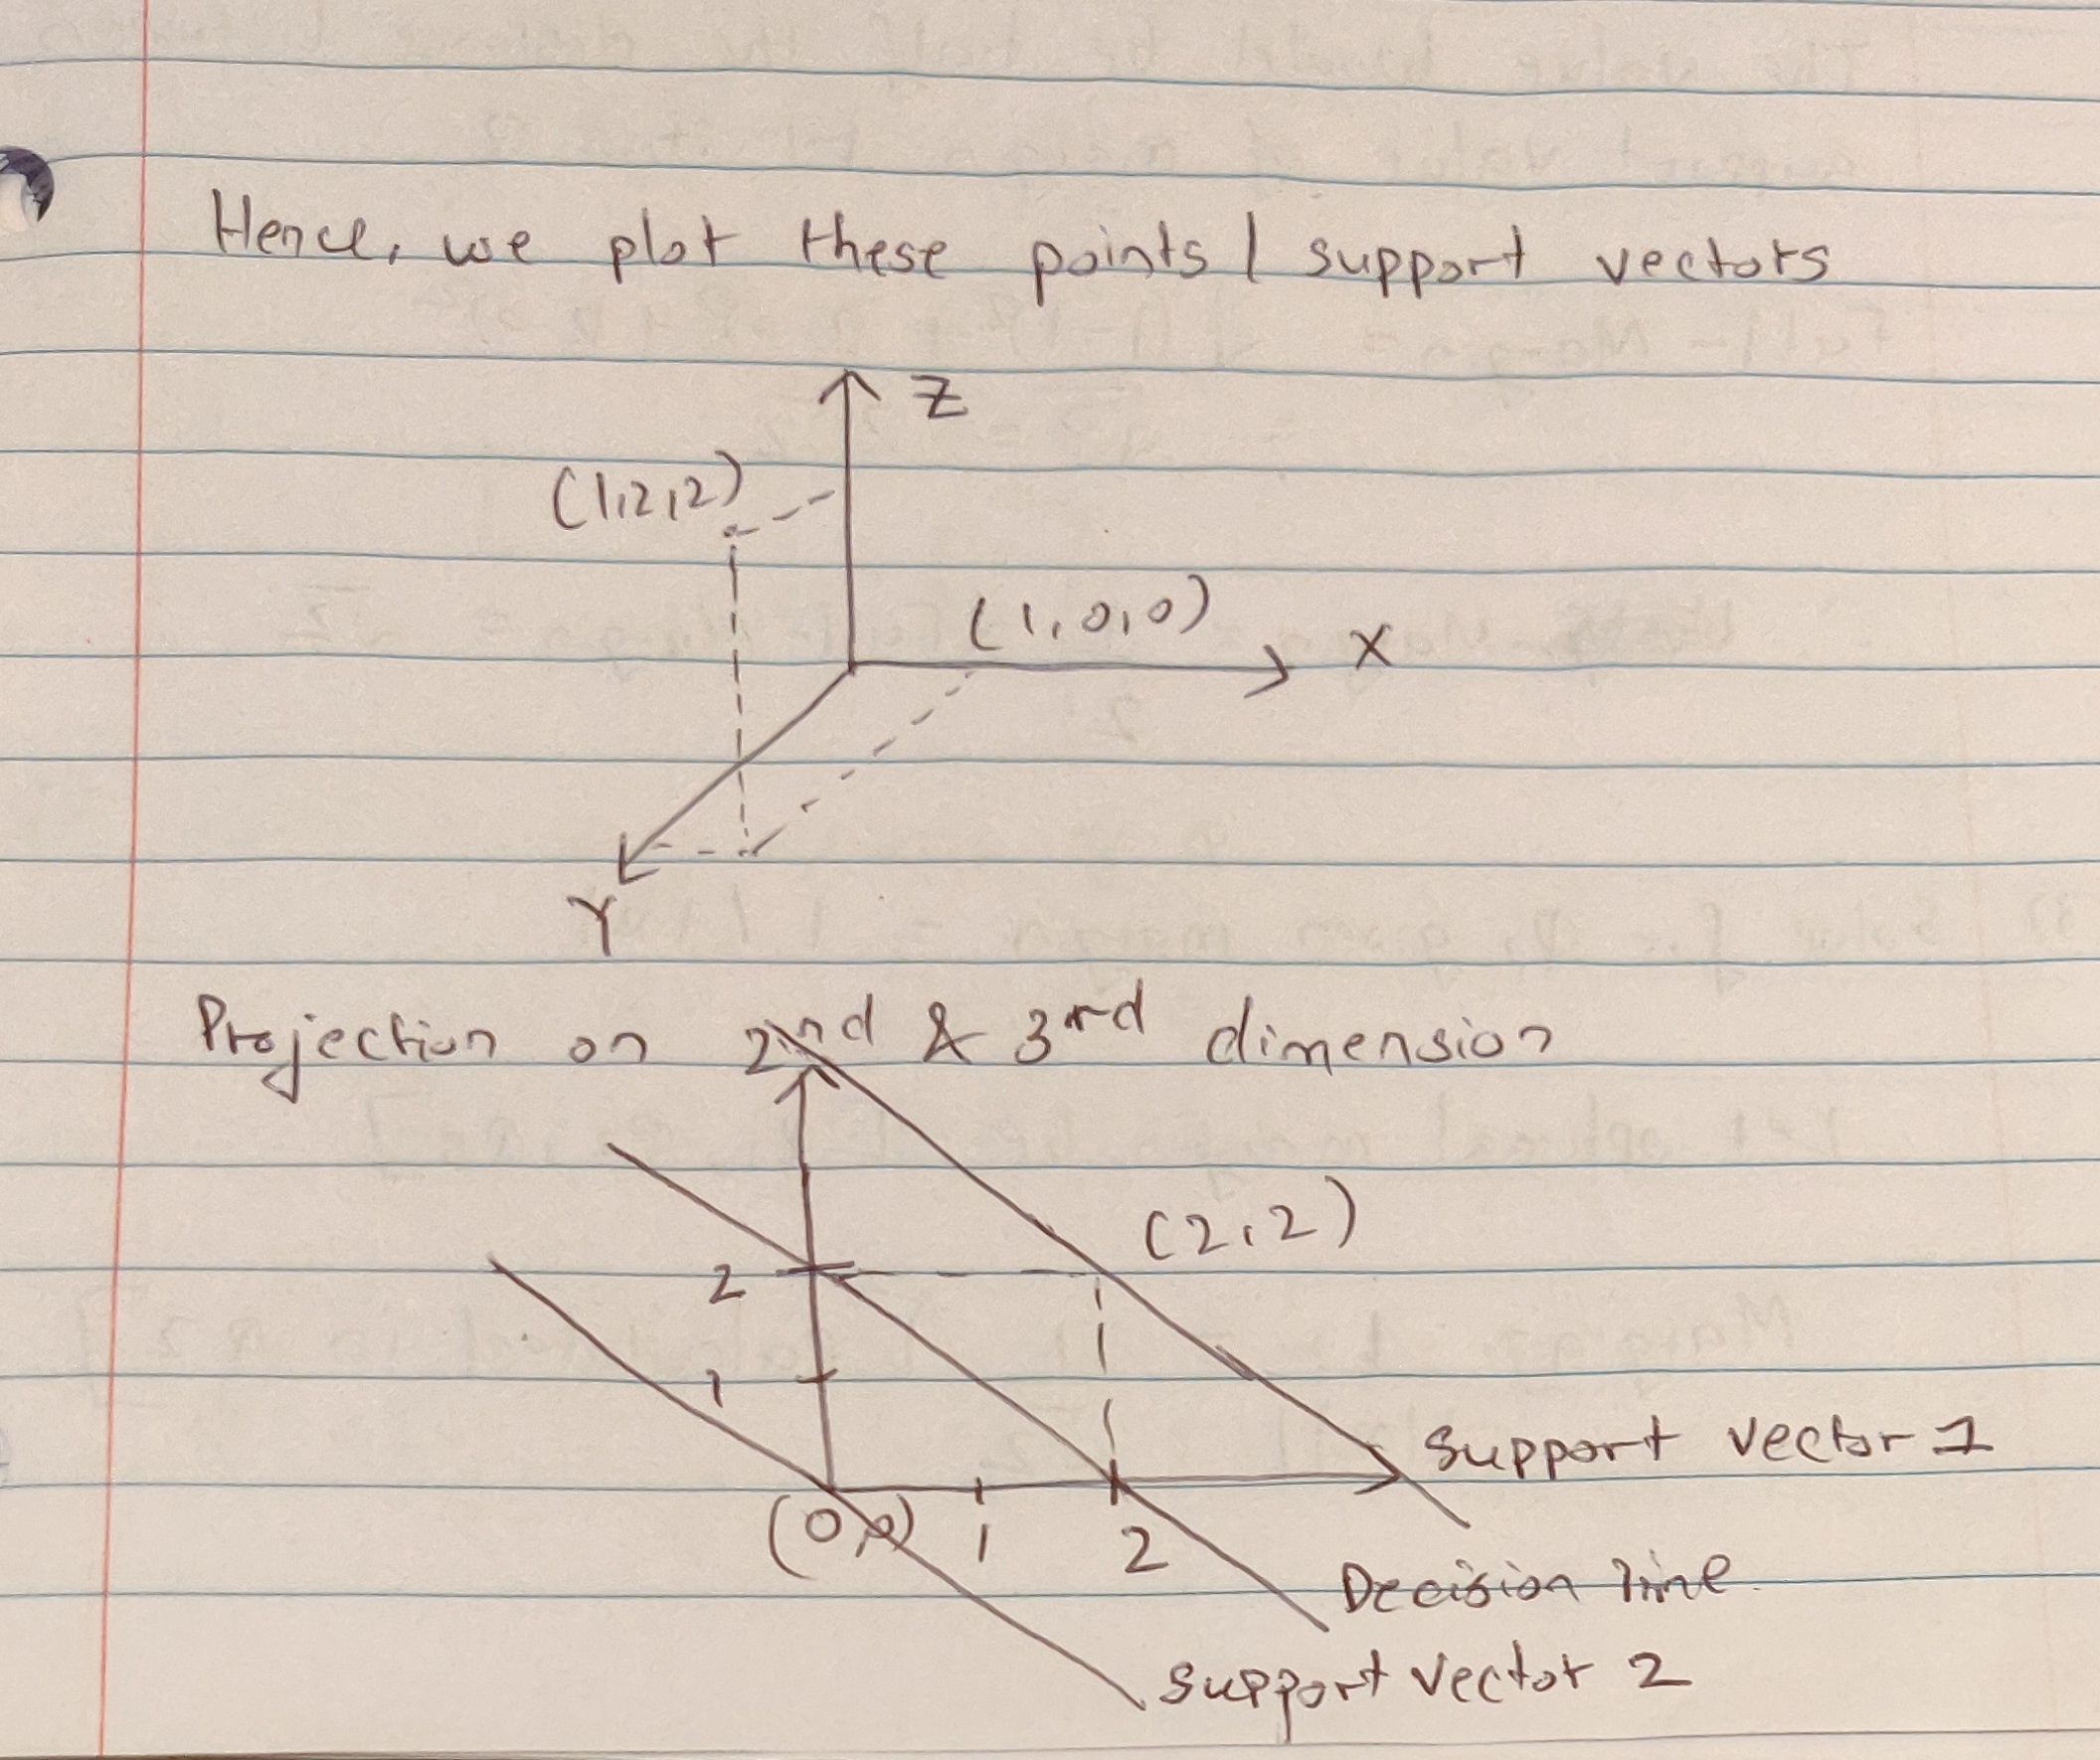 Hence, we plot these points | support vectors
Z
(1,2,2)
(1,0,0)
X
Y
Projection on 2nd & 3rd dimension
(2,2)
2
1
Support vector 1
(0,0)
1
2
Decision line
Support vector 2